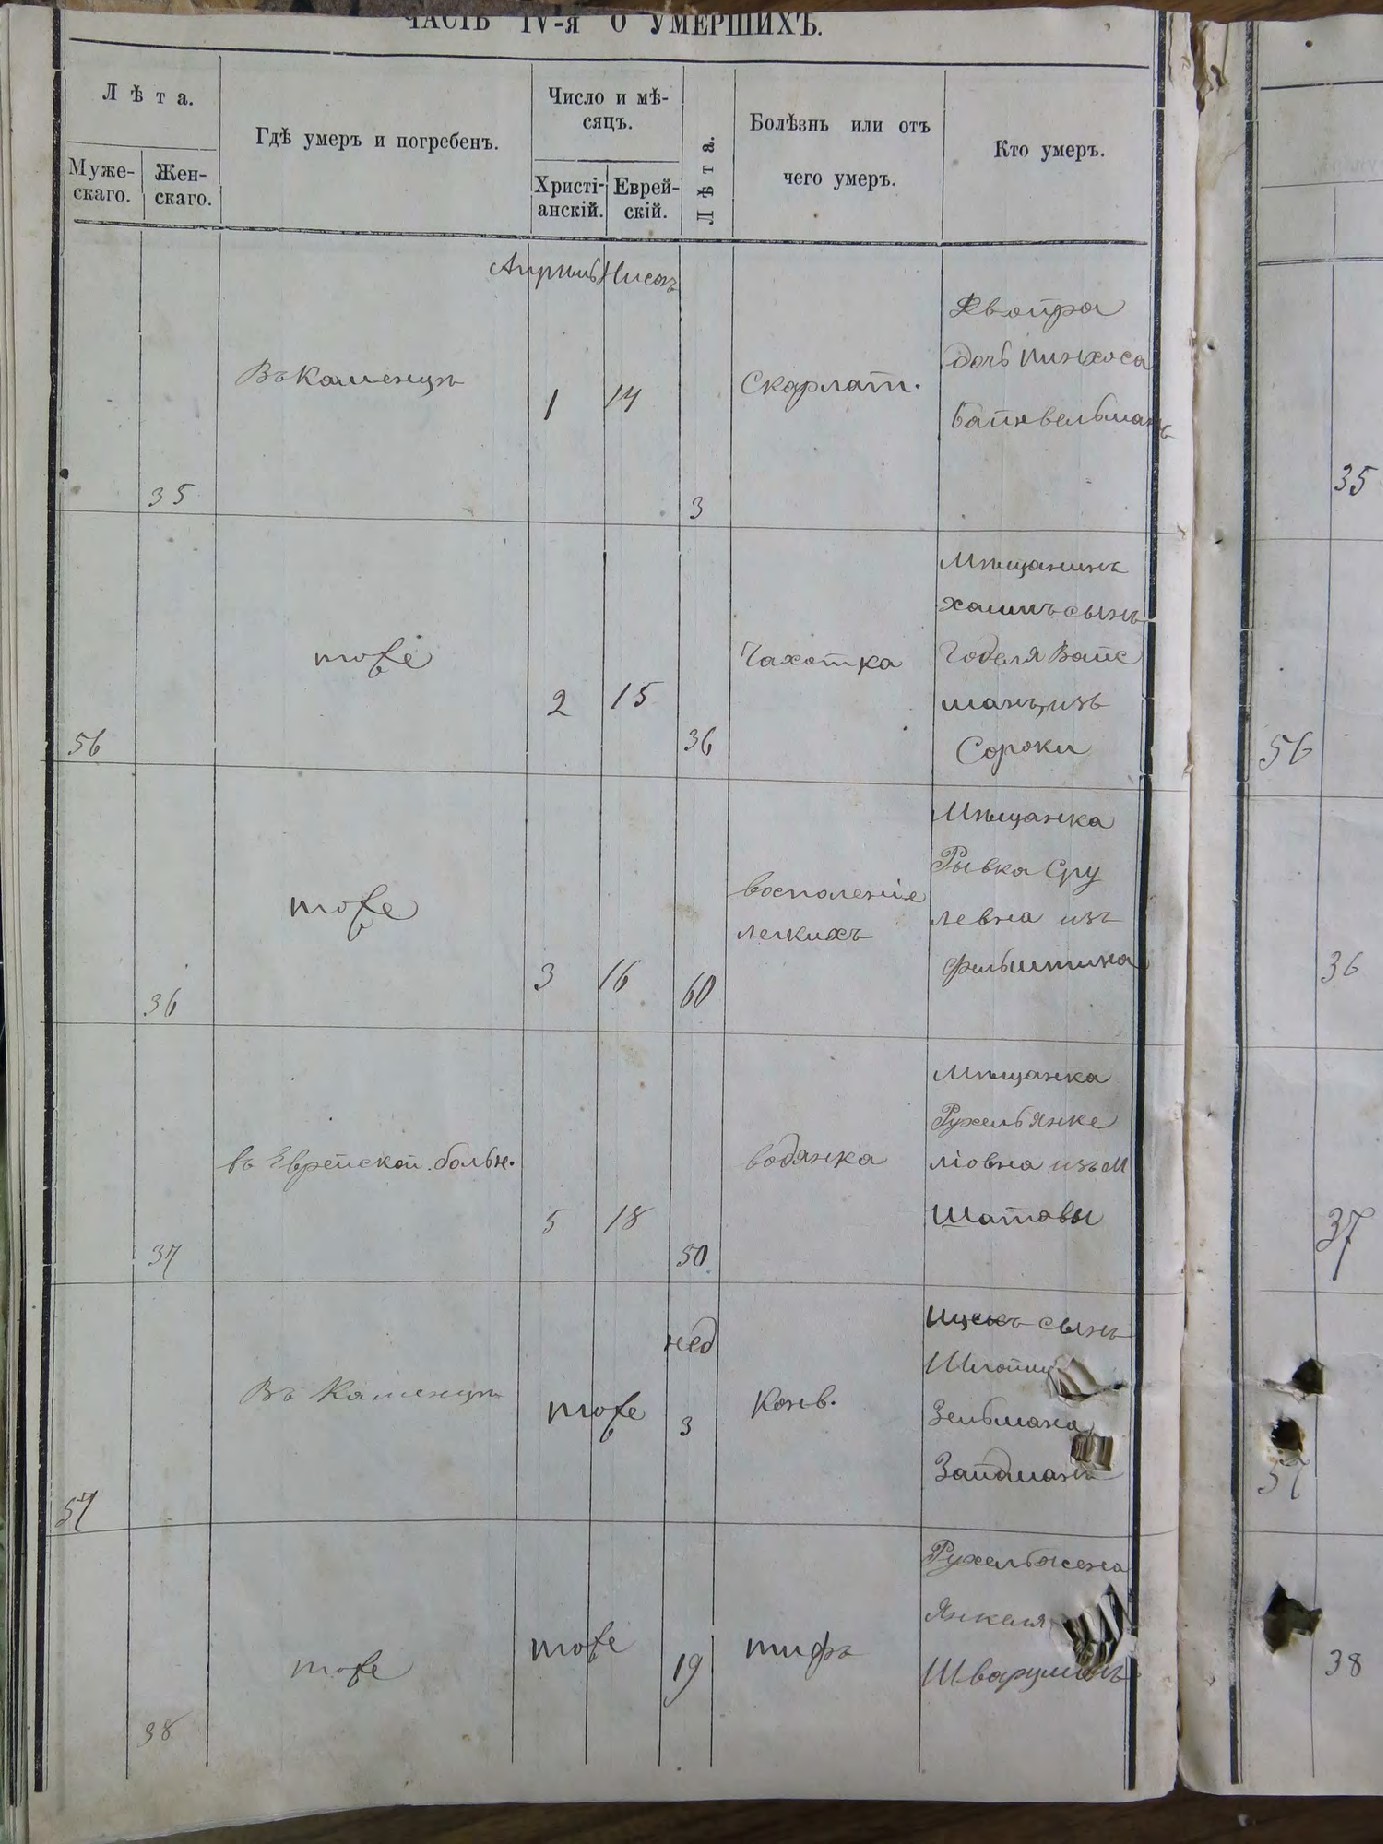 ЧАСТЬ IV-я О УМЕРШИХЪ.
Лѣта.
Муже-
скаго.
Жен-
скаго.
Гдѣ умеръ и погребенъ.
Число и мѣ-
сяцъ.
Христі-
анскій.
Еврей-
скій.
Лѣта.
Болѣзнь или отъ
чего умеръ.
Кто умеръ.
Апрѣль Нисонъ
35
Въ Каменцѣ
1
14
3
Скарлат.
Двойра
дочь Пинхоса
Байнвельманъ
35
56
тоже
2
15
36
Чахотка
Мѣщанинъ
Хаимъ сынъ
Годеля Вайс
манъ, изъ
Сороки
56
36
тоже
3
16
60
Восполеніе
легкихъ
Мѣщанка
Рывка Сру
левна изъ
Фельштина
36
37
въ Еврейской больн.
5
18
50
водянка
Мѣщанка
Рухель Янке
ліовна изъ М
Шатовы
37
57
Въ Каменцѣ
тоже
нед
3
Конв.
Ицекъ сынъ
Зельмана
Зайдманъ
57
38
тоже
тоже
19
тифъ
Рухель жена
Янкеля
Шварцманъ
38